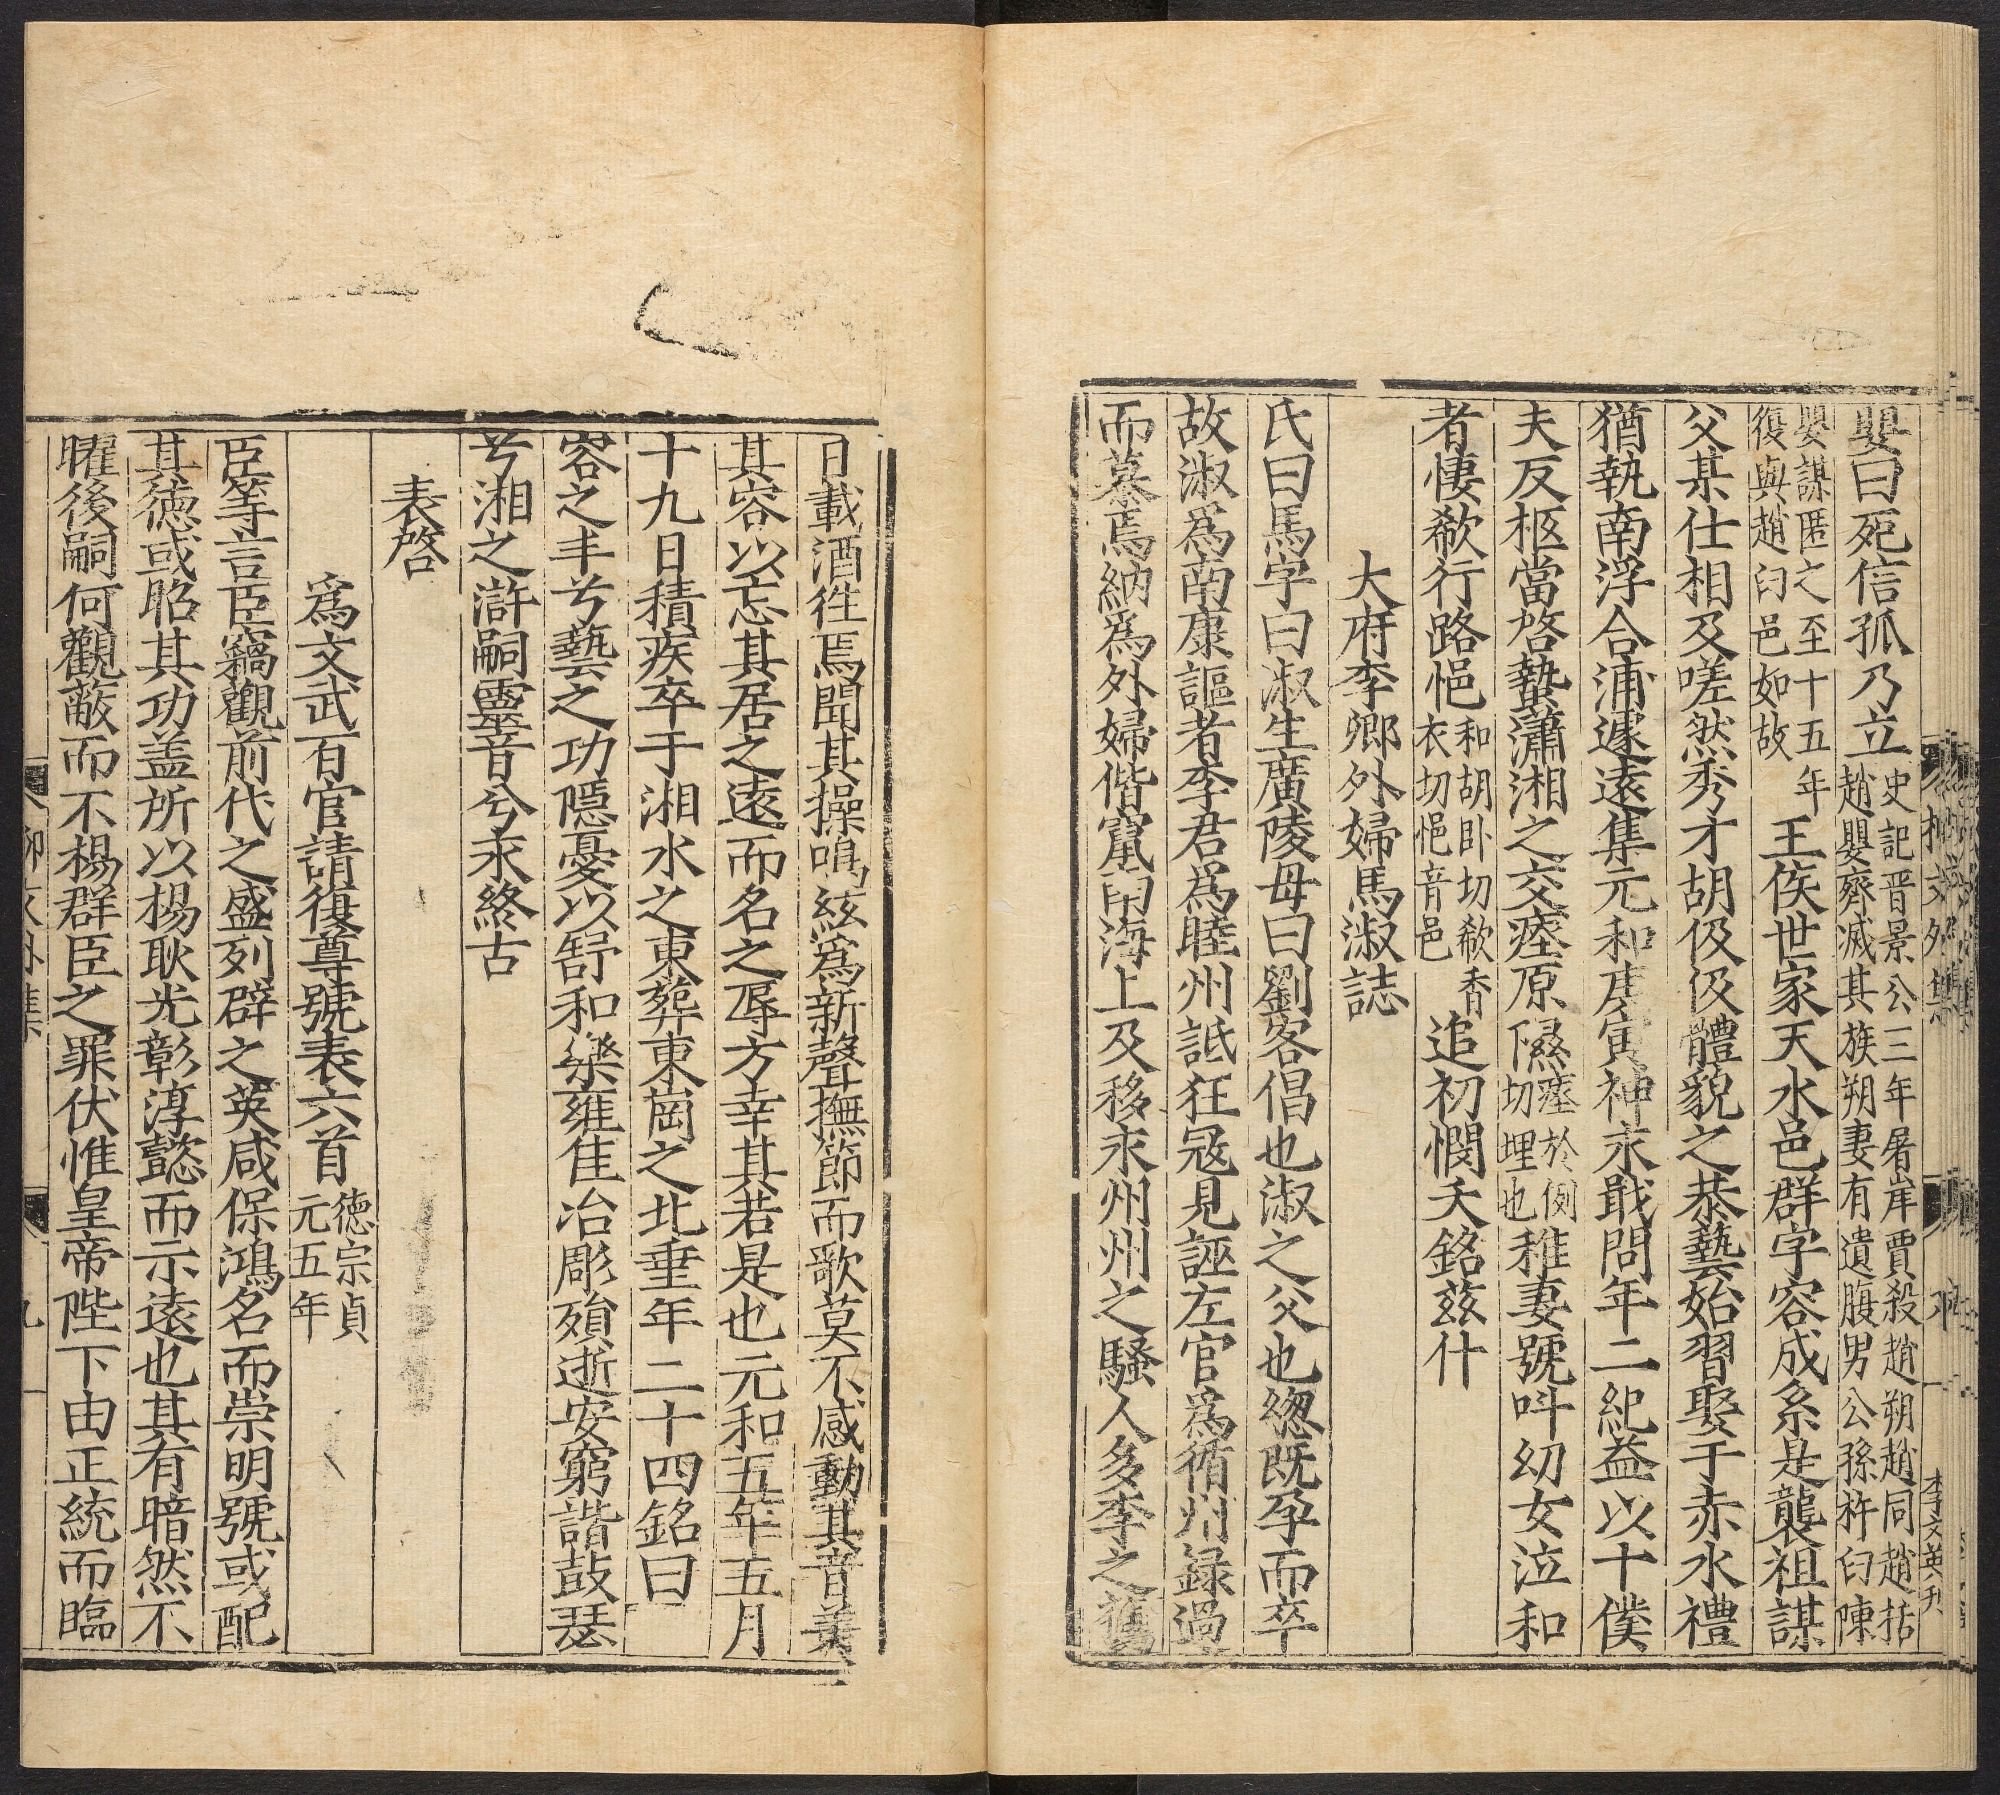 嬰曰死信孤乃立史記晋景公三年屠岸賈殺趙朔趙同趙括趙嬰齊滅其族朔妻有遺腹男公孫杵臼陳
嬰謀匿之至十五年復與趙臼邑如故王侯世家天水邑群字容成系是襲祖謀
父某仕相及嗟然秀才胡伋伋體貌之恭藝始習娶于赤水禮
猶執南浮合浦遽遠集元和庚寅神永戢問年二紀益以十僕
夫反柩當啓蟄瀟湘之交瘞原隰瘞於例切埋也稚妻號呌幼女泣和
者悽欷行路悒和胡卧切欷香衣切悒音邑追初憫夭銘兹什
大府李卿外婦馬淑誌
氏曰馬字曰淑生廣陵母曰劉客倡也淑之父也緫既孕而卒
故淑爲南康謳者李君爲睦州詆狂宼見誣左官爲循州録過
而慕焉納爲外婦偕竄南海上及移永州州之騷人多李之舊
柳文外集
李文英刋
日載酒徃焉聞其操鳴絃爲新聲撫節而歌莫不感動其音羙
其容以忘其居之遠而名之辱方幸其若是也元和五年五月
十九日積疾卒于湘水之東葬東崗之北垂年二十四銘曰
容之丰兮藝之功隱憂以舒和樂雍佳冶彫殞逝安窮諧鼓瑟
兮湘之滸嗣靈音兮永終古
表啓
爲文武百官請復尊號表六首德宗貞元五年
臣等言臣竊觀前代之盛列群之英咸保鴻名而崇明號或配
其德或昭其功盖所以楊耿光彰淳懿而示遠也其有暗然不
曜後嗣何觀蔽而不楊群臣之罪伏惟皇帝陛下由正統而臨
柳文外集
九